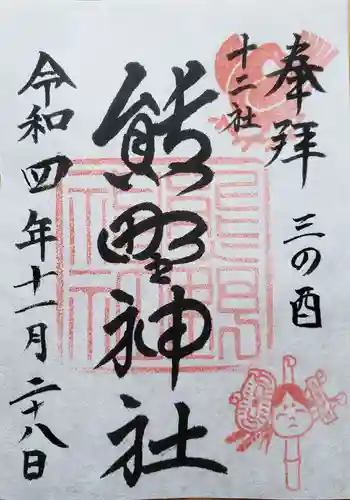 奉拝
三の酉
十二社
熊野神社
令和四年十一月二十八日